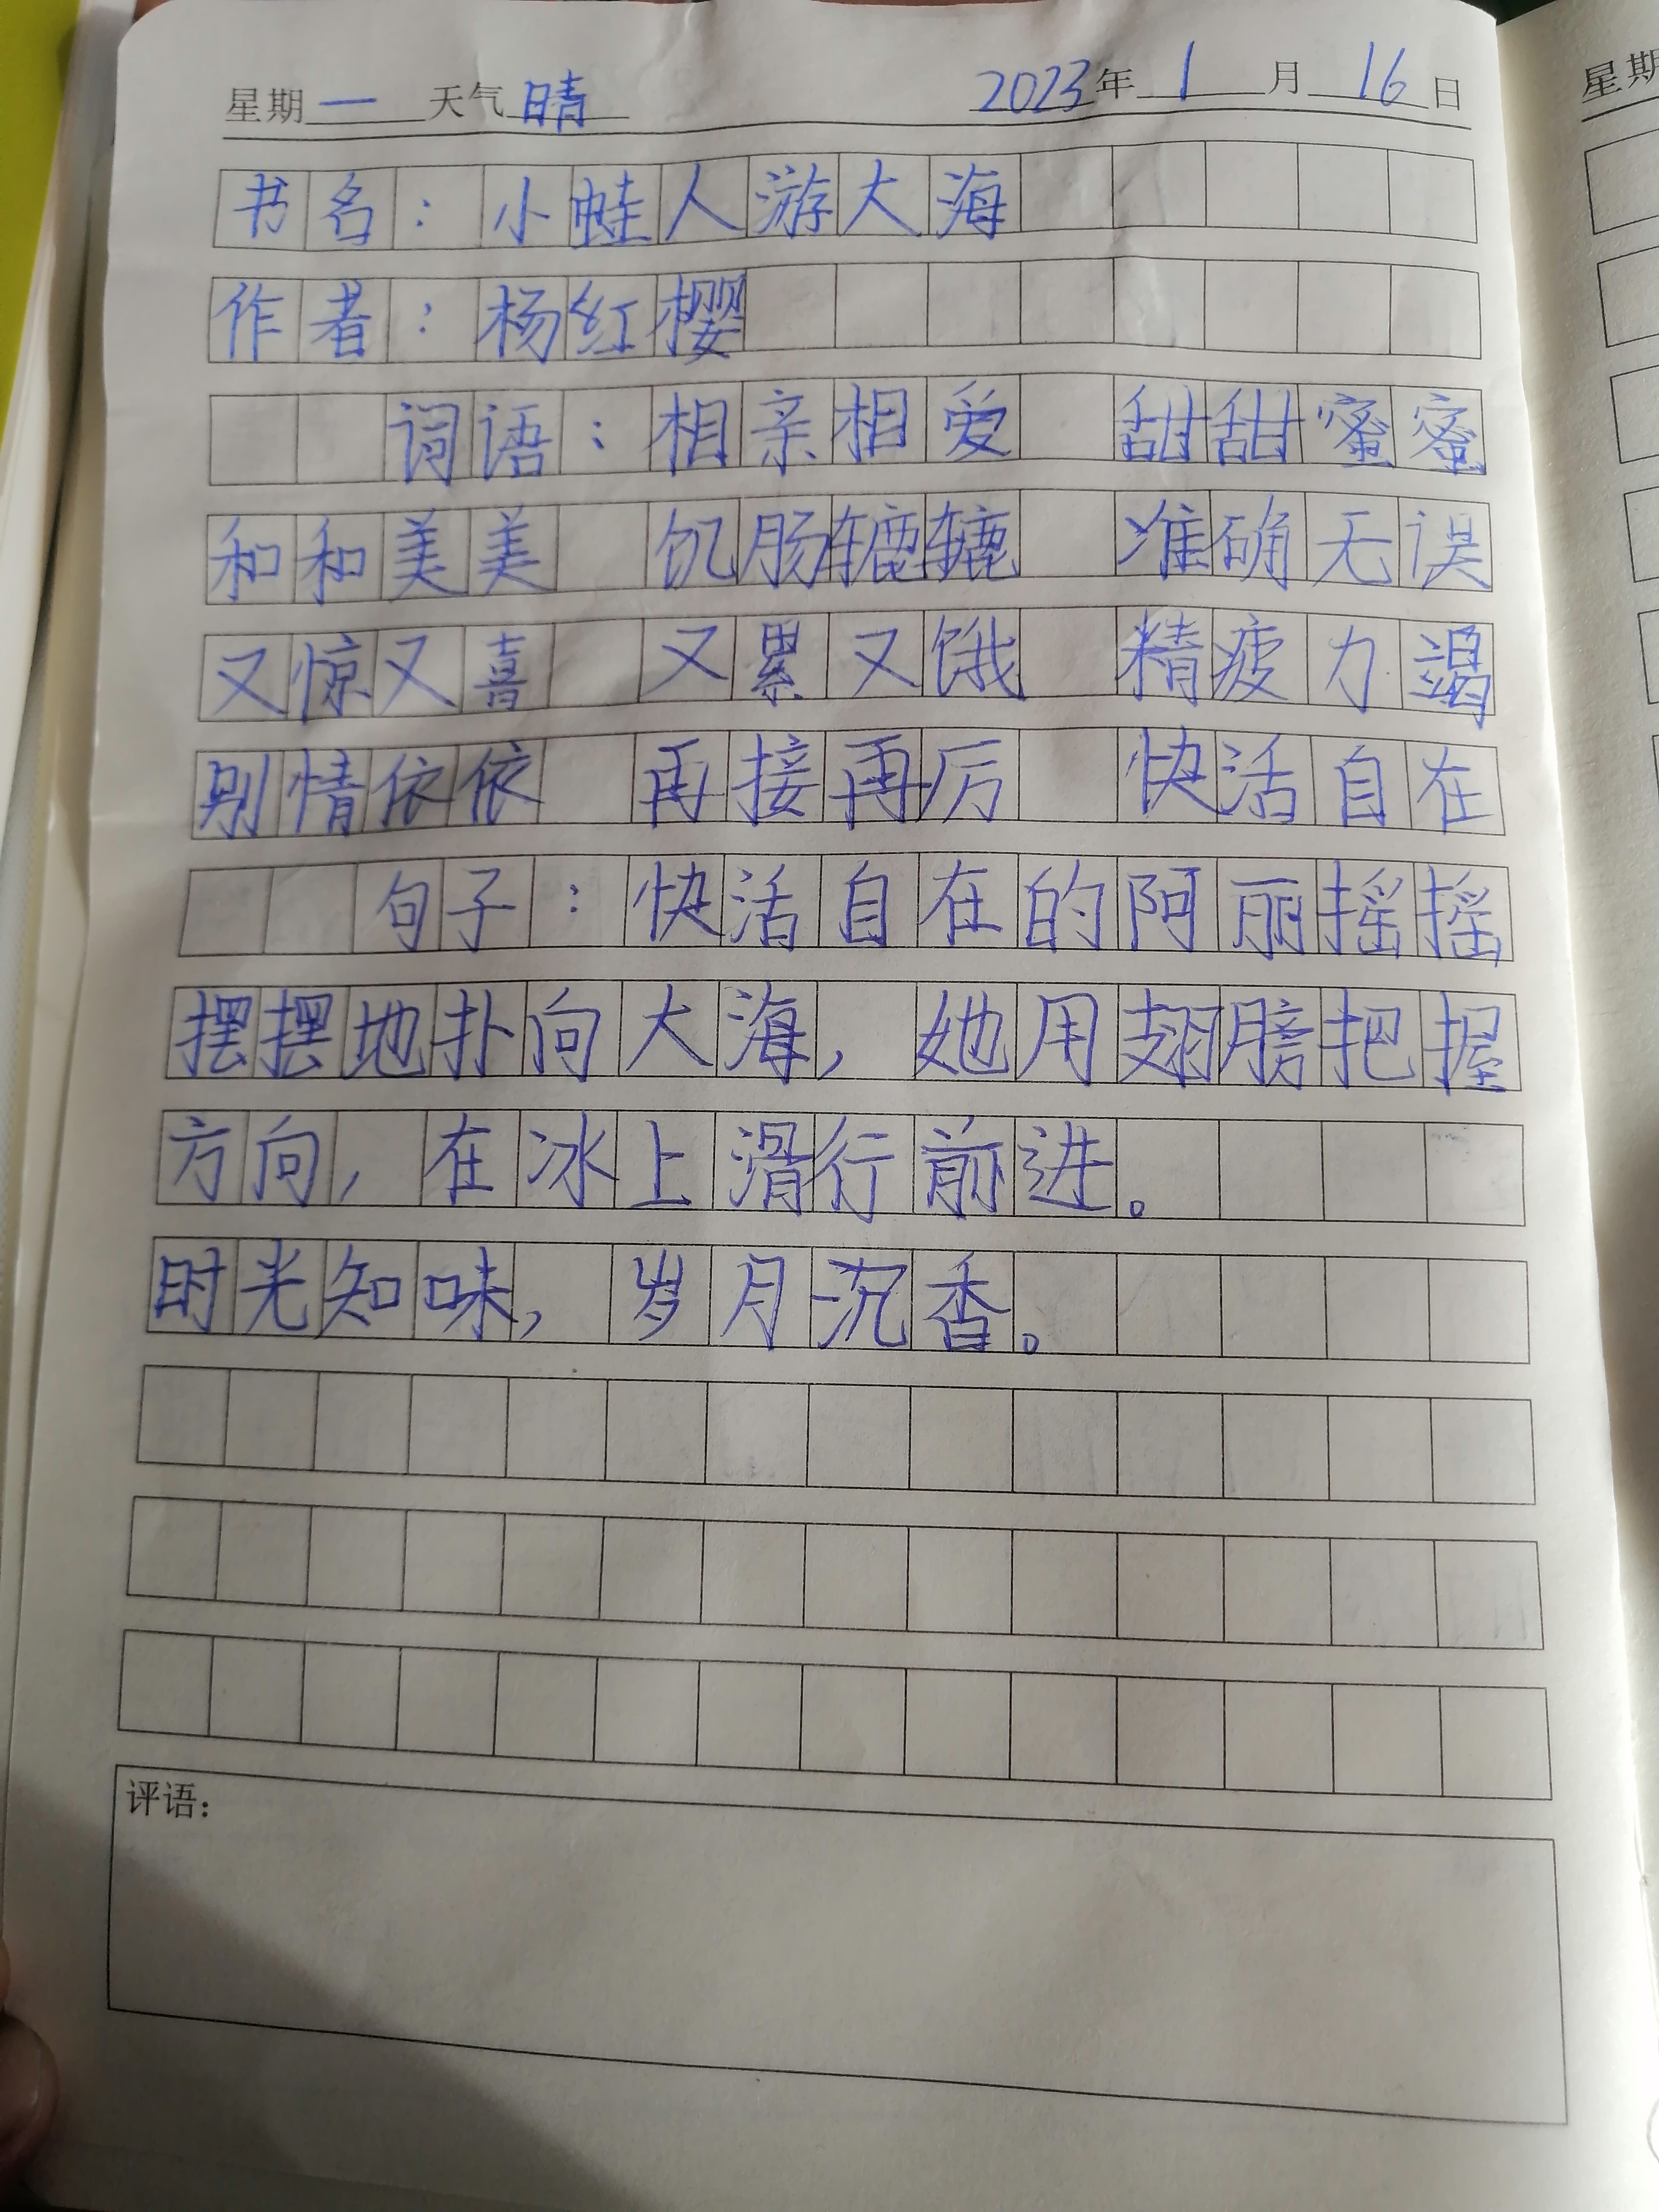 星期一 天气晴 2023年1月16日
书名：小蛙人游大海
作者：杨红樱
词语：相亲相爱 甜甜蜜蜜
和和美美 饥肠辘辘 准确无误
又惊又喜 又累又饿 精疲力竭
别情依依 再接再厉 快活自在
句子：快活自在的阿丽摇摇
摆摆地扑向大海，她用翅膀把握
方向，在冰上滑行前进。
时光知味，岁月沉香。
评语：
星期